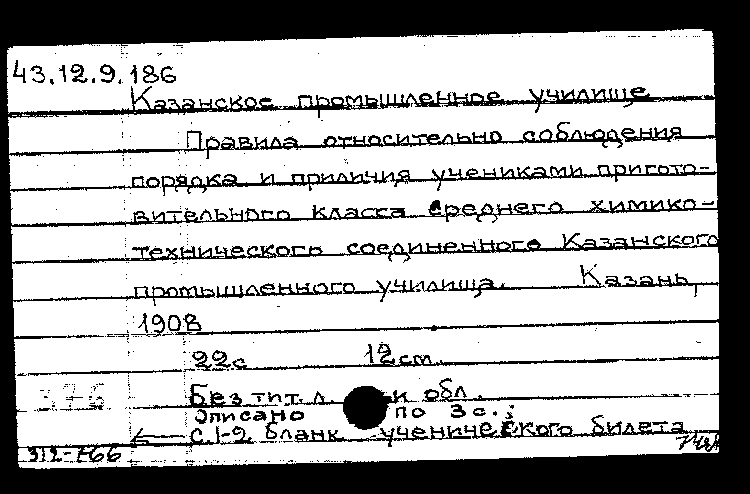 43.12.9.186
Казанское промышленное училище
Правила относительно соблюдения
порядка и приличия учениками пригото-
вительного класса среднего химико-
технического соединенного Казанского
промышленного училища. Казань,
1908
22с 12см.
376 Без тит. л. и обл.
Описано по 3 с.;
с. 1-2 бланк ученического билета
312-766